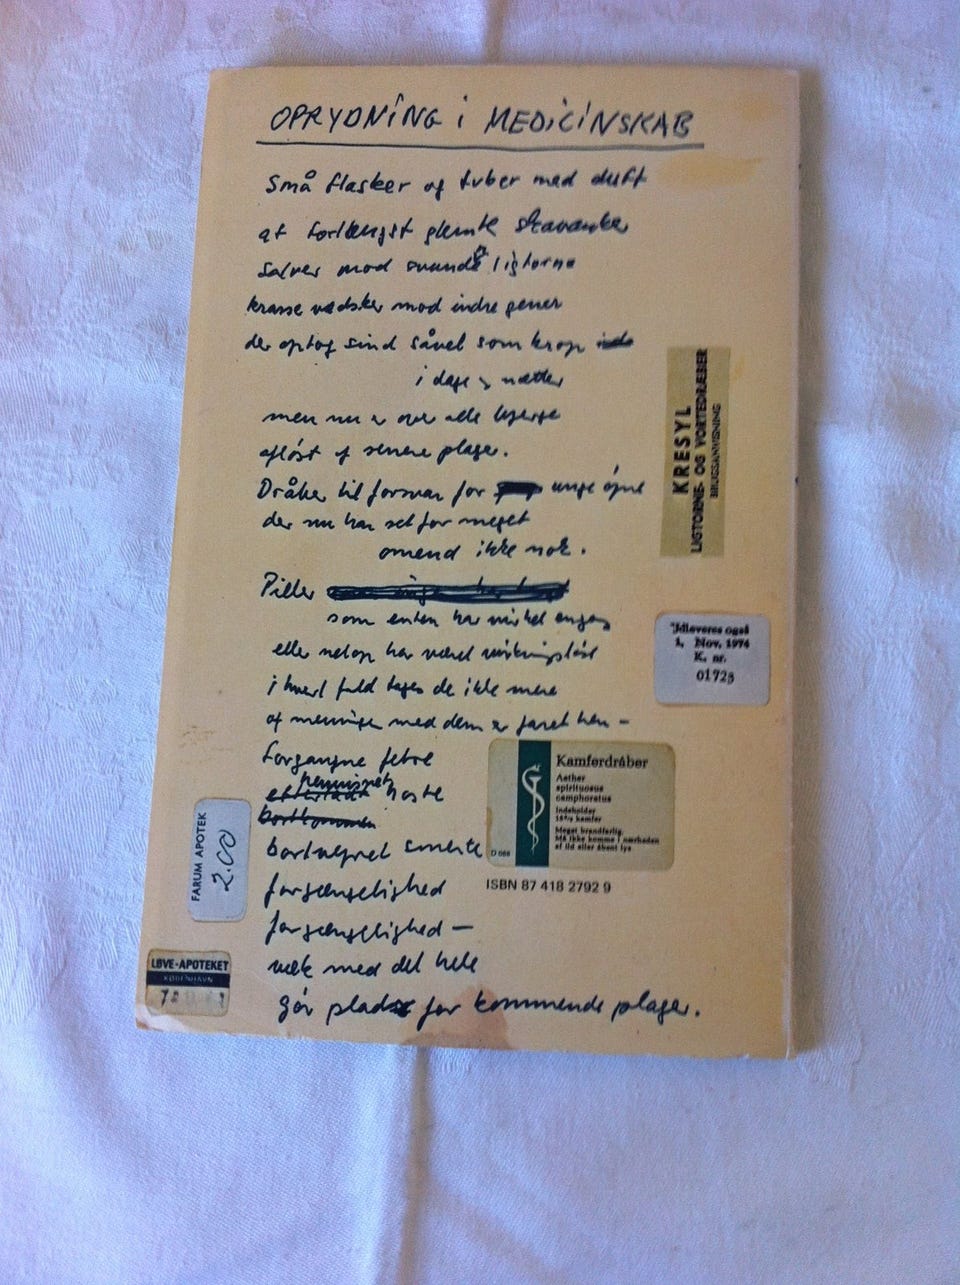 OPRYDNING i MEDICINSKAB
Små flasker og tuber med duft
af forlængst glemte skavanker
salver mod svundne ligtorne
krasse vædsker mod indre gener
der optog sind såvel som krop
i dage og nætter
men nu er over alle bjerge
afløst af senere plager.
Dråber til forsvar for unge øjne
der nu har set for meget
omend ikke nok.
Piller
som enten har virket engang
eller netop har været virkningsløst
i hvert fald tages de ikke mere
og meningen med dem er faret hen –
forgangne febre
hoste
bortvejret smerte
forgængelighed
forgængelighed –
væk med det hele
gør plads for kommende plager.
KRESYL
LIGTORNE- OG VORTEDRÅBER
BRUGSANVISNING
Udleveres også
1. Nov. 1974
K. nr.
01723
Kamferdråber
Aether
spirituosus
camphoratus
Indeholder
10% kamfer
Meget brandfarlig.
Må ikke komme i nærheden
af ild eller åbent lys
D 088
ISBN 87 418 2792 9
FARUM APOTEK
2.00
LØVE-APOTEKET
KØBENHAVN